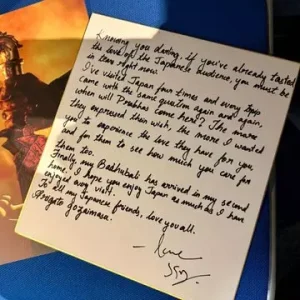 Knowing you darling, if you've already tasted
the love of the Japanese audience, you must be
in tears right now.
I've visited Japan four times and every trip
came with the same question again and again,
when will Prabhas come here? The more
they expressed their wish, the more I wanted
you to experience the love they have for you
and for them to see how much you care for
them too.
Finally my Baahubali has arrived in my second
home. I hope you enjoy Japan as much as I have
enjoyed every visit.
To all my Japanese friends, love you all.
Arogato gozaimasu.
- love